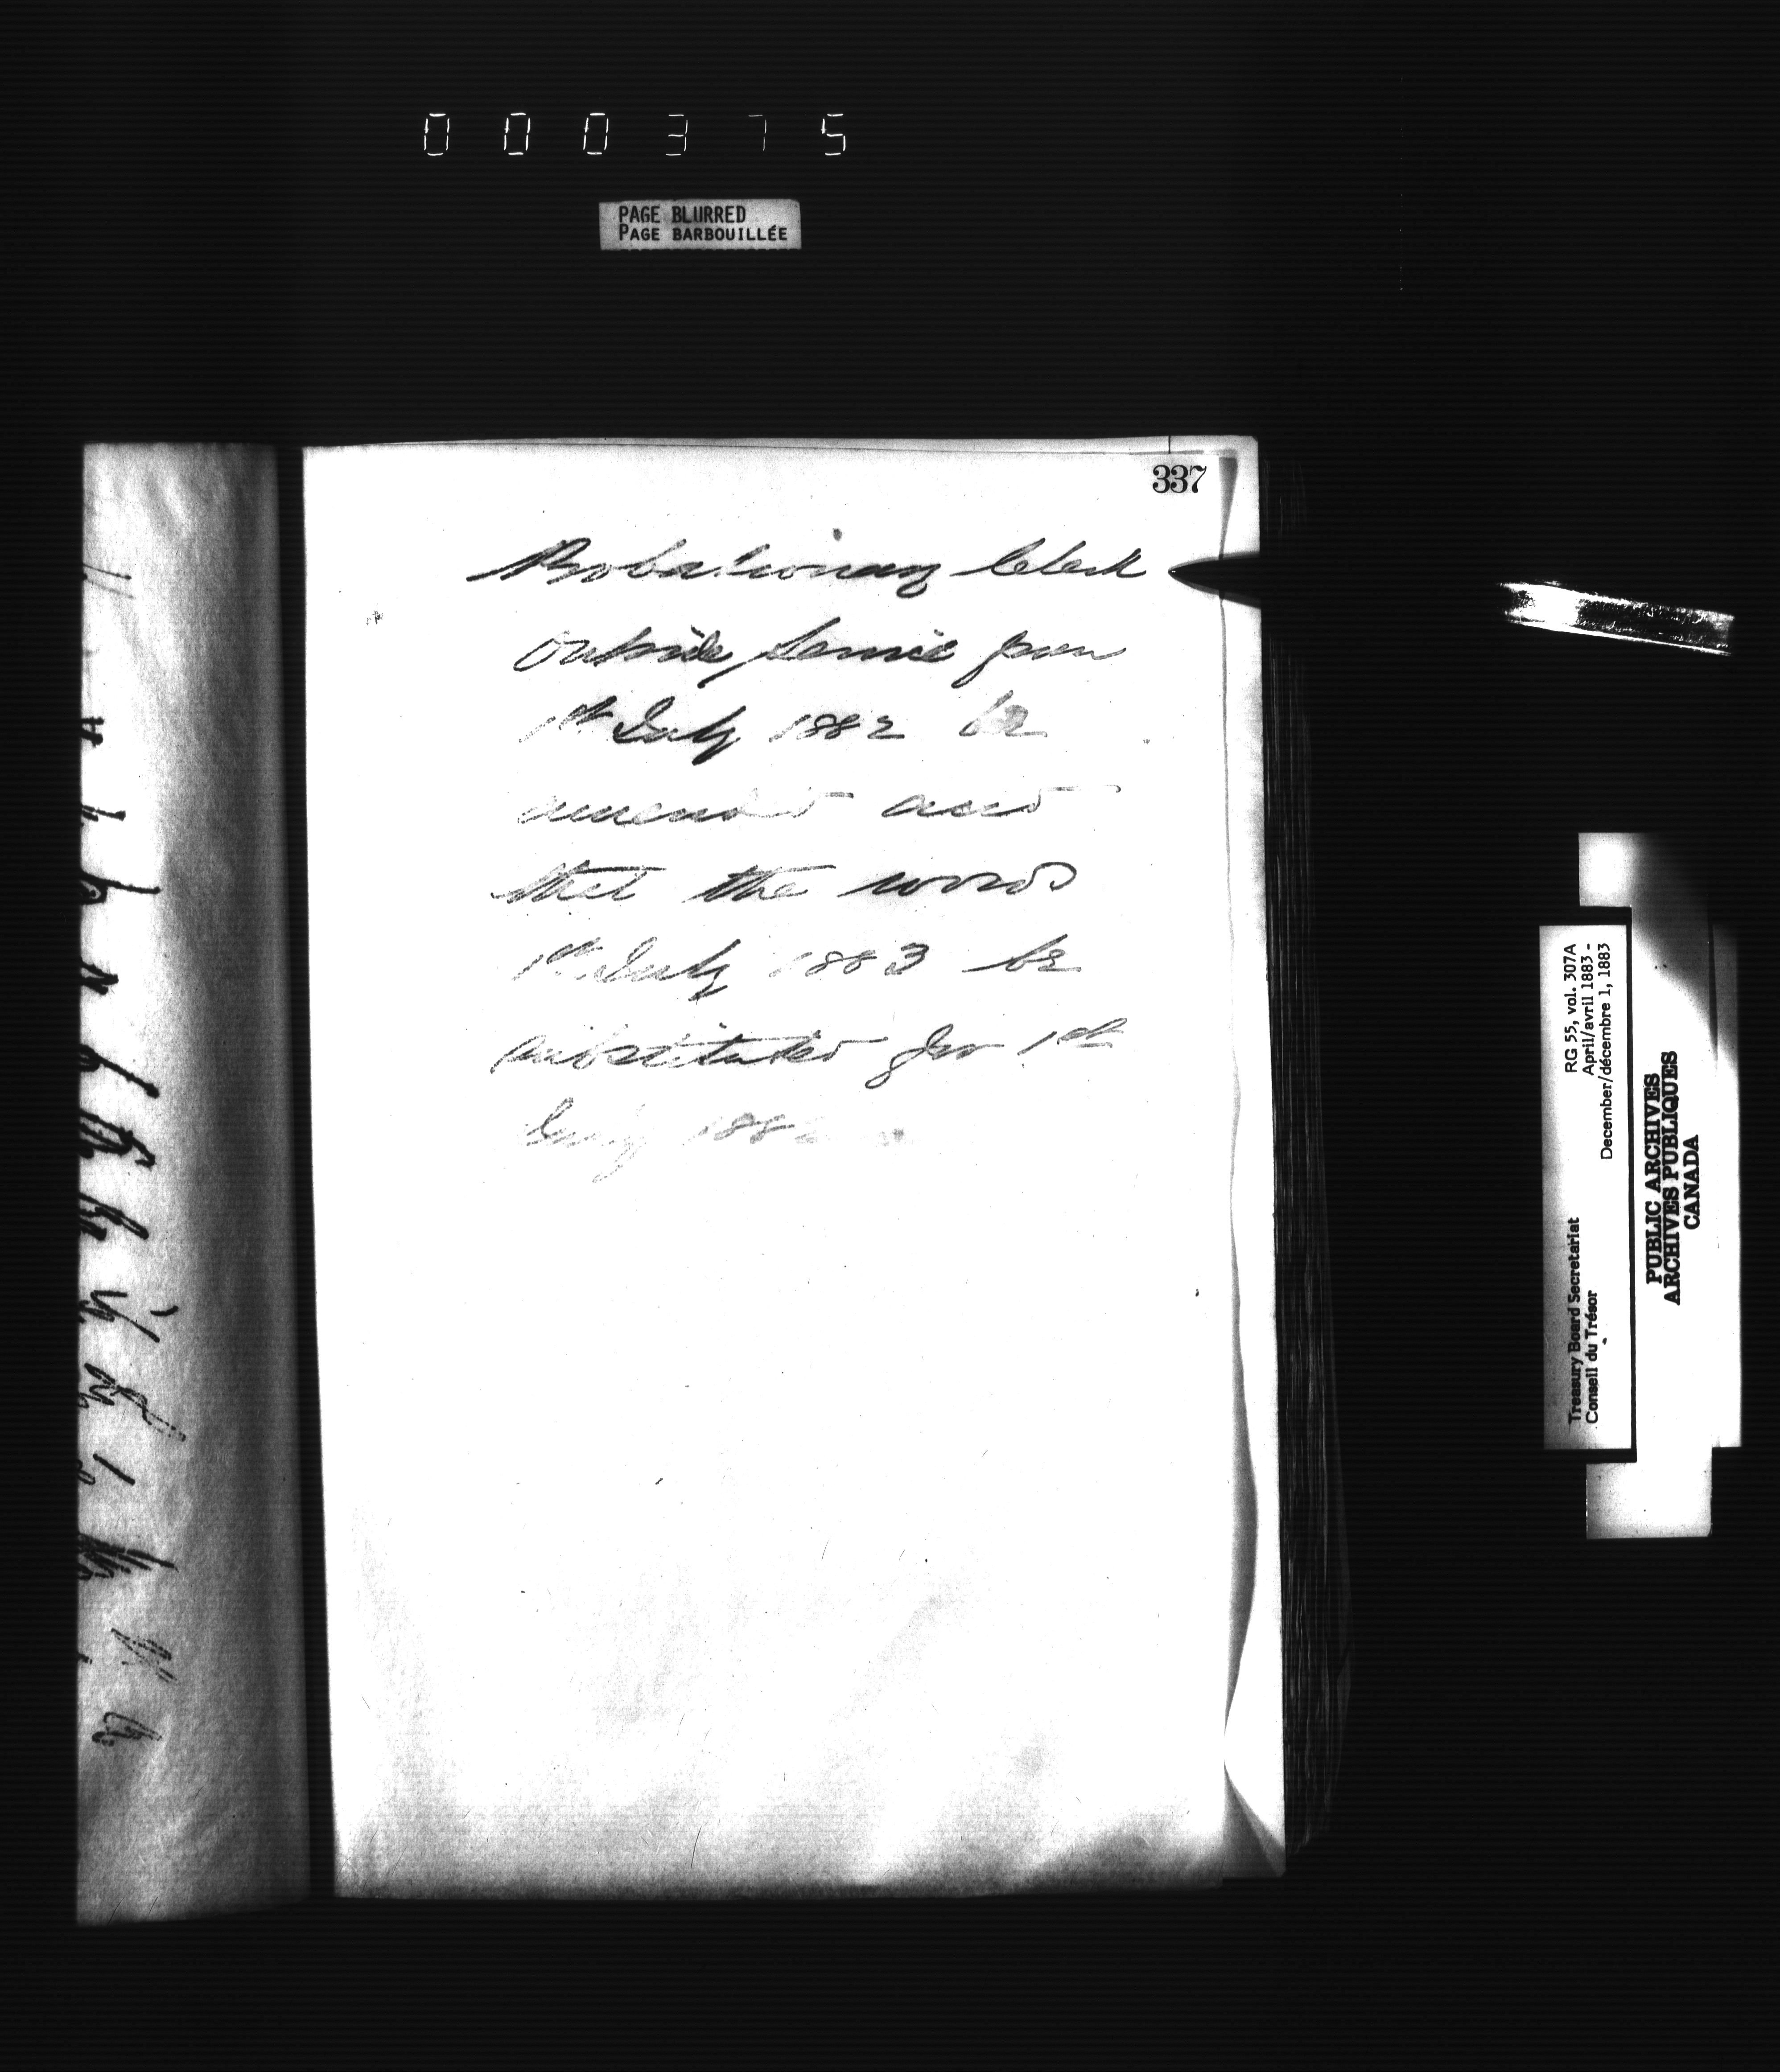 000375
PAGE BLURRED
PAGE BARBOUILLÉE
337
Probationary Clerk
Outside Service from
1st July 1882 be
amended and
that the words
1st July 1883 be
substituted for 1st
July 188
RG 55, vol. 307A
April/avril 1883 -
December/décembre 1, 1883
Treasury Board Secretariat
Conseil du Trésor
PUBLIC ARCHIVES
ARCHIVES PUBLIQUES
CANADA